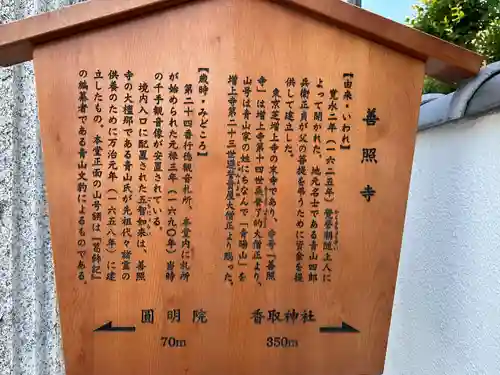 善照寺
【由来・いわれ】
寛永二年(一六二五年)覺譽潮隨上人に
よって開かれた。地元名士である青山四郎
兵衛正貞が父の菩提を弔うために資金を提
供して建立した。
東京芝増上寺の末寺であり、寺号「善照
寺」は増上寺第十四世桑譽了的大僧正より、
山号は青山家の姓にちなんで「青陽山」を
増上寺第二十三世遵譽貴屋大僧正より賜った。
【歳時・みどころ】
第二十四番行徳観音札所。本堂内に札所
が始められた元禄三年(一六九〇年)当時
の千手観音像が安置されている。
境内入口に配置された五智如来は、善照
寺の大檀那である青山氏が先祖代々諸霊の
供養のために万治元年(一六五八年)に建
立したもの。本堂正面の山号額は『葛飾記』
の編纂者である青山文豹によるものである。
圓明院
70m
香取神社
350m